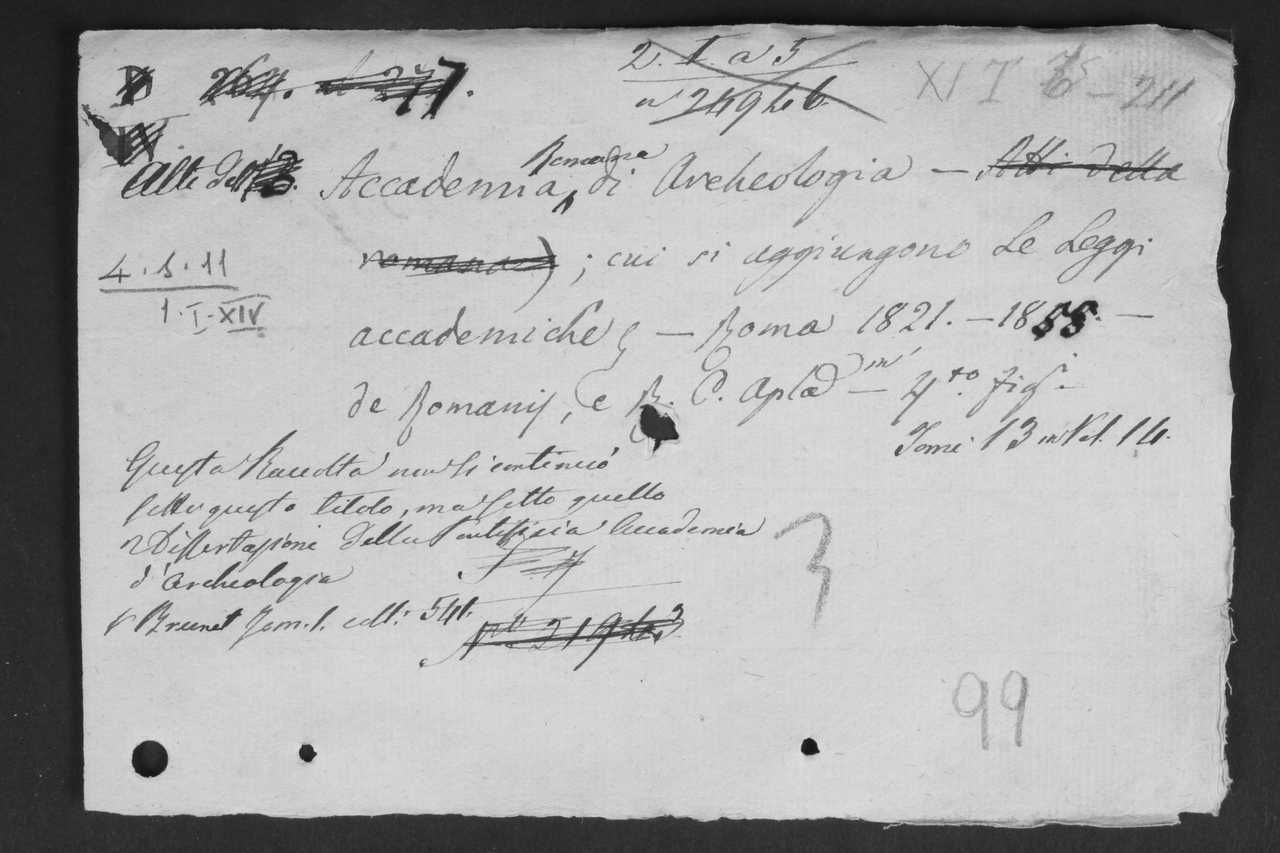 2. I a 5
XI I
211
Atti dell' Accademia Romana di Archeologia — Atti della
romana) ; cui si aggiungono Le Leggi
4.5.11
accademiche — Roma 1821. — 1855. —
1. I-XIV
de Romanis, e R. C. Aplã — in 4.to fig.
Tomi 13 in Vol. 14.
Questa Raccolta non si continuò
sotto questo titolo, ma sotto quello
Dissertazioni della Pontificia Accademia
d'Archeologia
V. Brunet Tom. 1. coll: 541.
3
99